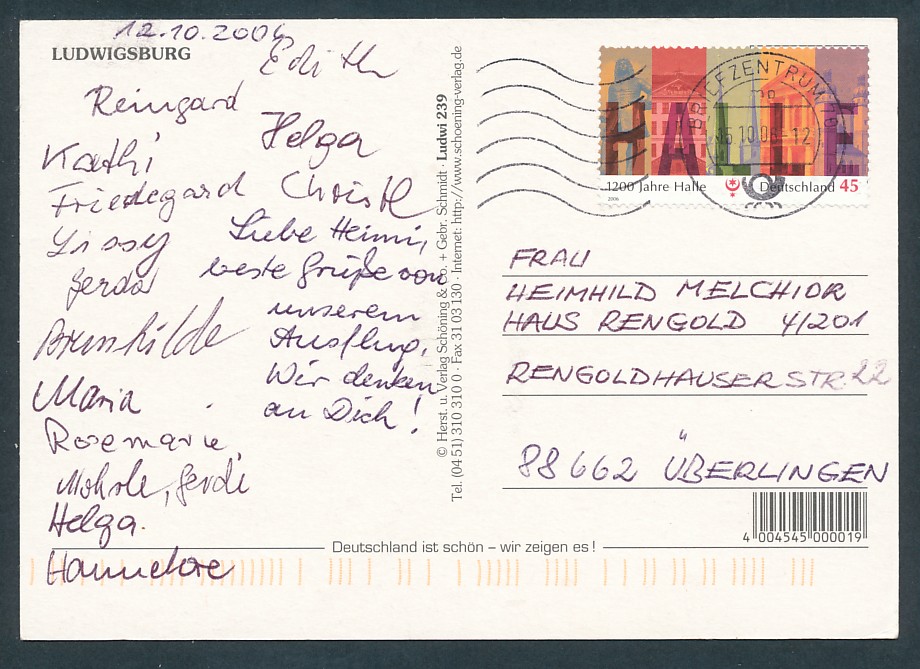 12.10.2006
LUDWIGSBURG
Edith
Reingard
Helga
Kathi
Friedegard
Christl
Lissy
Gerda
Liebe Heimi,
beste Grüße von
unserem
Ausflug.
Wir denken
an Dich!
Brunhilde
Maria
Rosemarie
Gerdi
Helga.
Hannelore
© Herst. u. Verlag Schöning & Co. + Gebr. Schmidt · Ludwi 239
Tel. (04 51) 310 310 0 · Fax 31 03 130 · Internet: http://www.schoening-verlag.de
BRIEFZENTRUM
HALLE
1200 Jahre Halle
Deutschland 45
2006
FRAU
HEIMHILD MELCHIOR
HAUS RENGOLD 4/201
RENGOLDHAUSERSTR. 22
88662 ÜBERLINGEN
4 004545 000019
Deutschland ist schön – wir zeigen es!